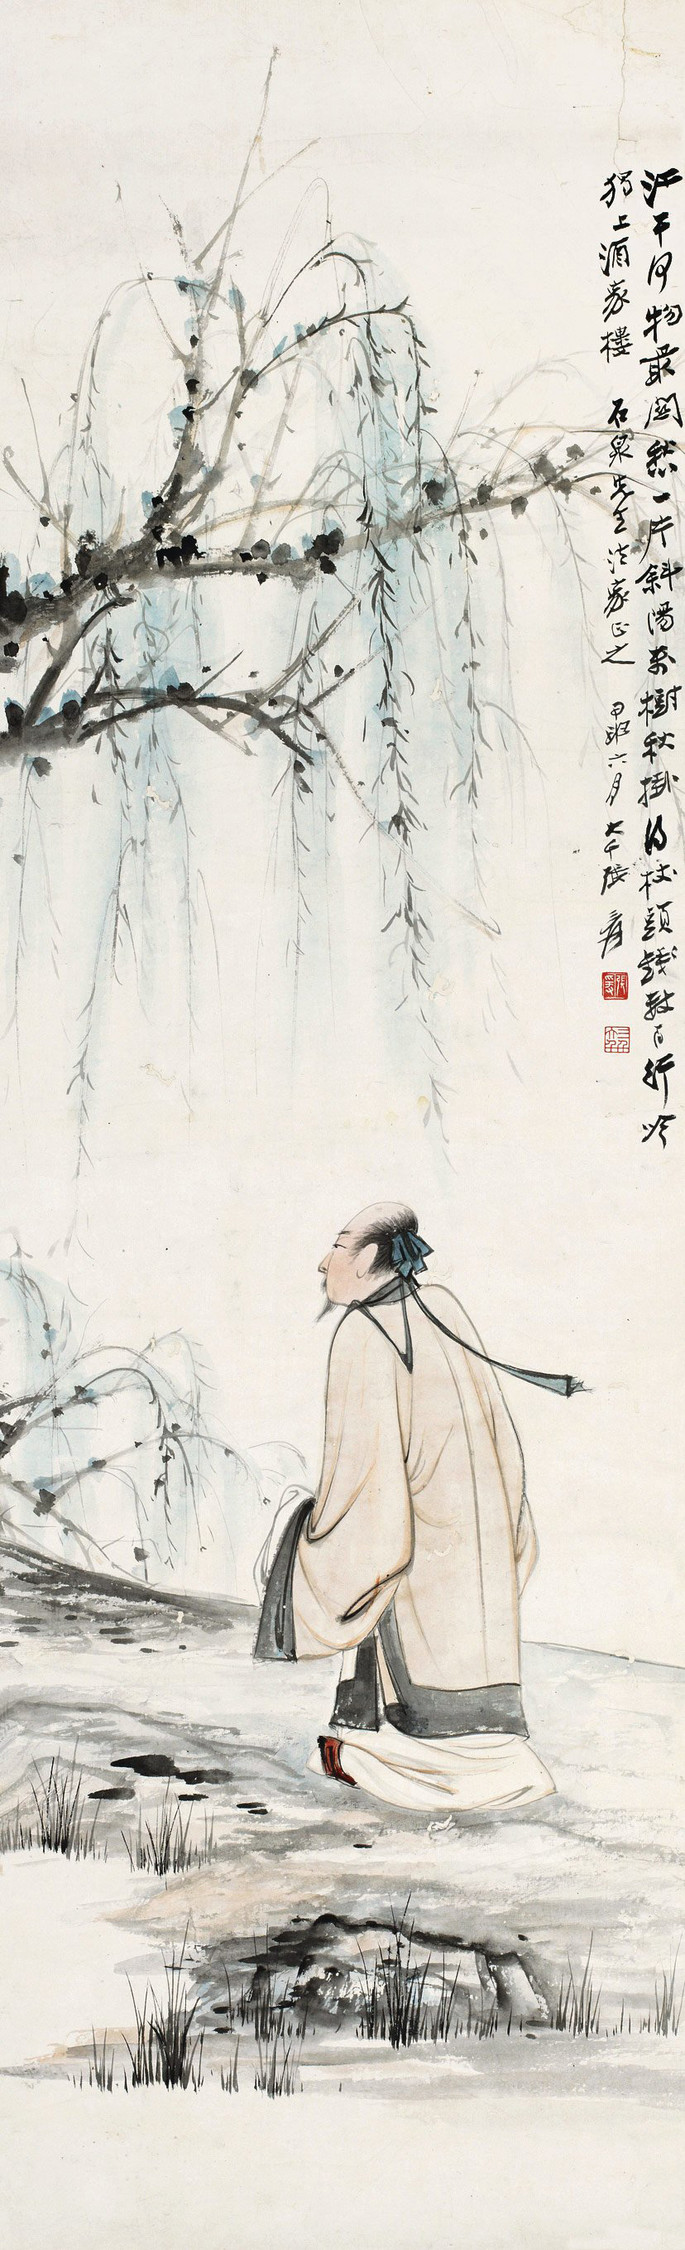 江干何物最關愁一片斜陽萬樹秋掛得杖頭錢數百行吟
獨上酒家樓 石泉先生法家正之 甲戌六月 大千張爰
張爰